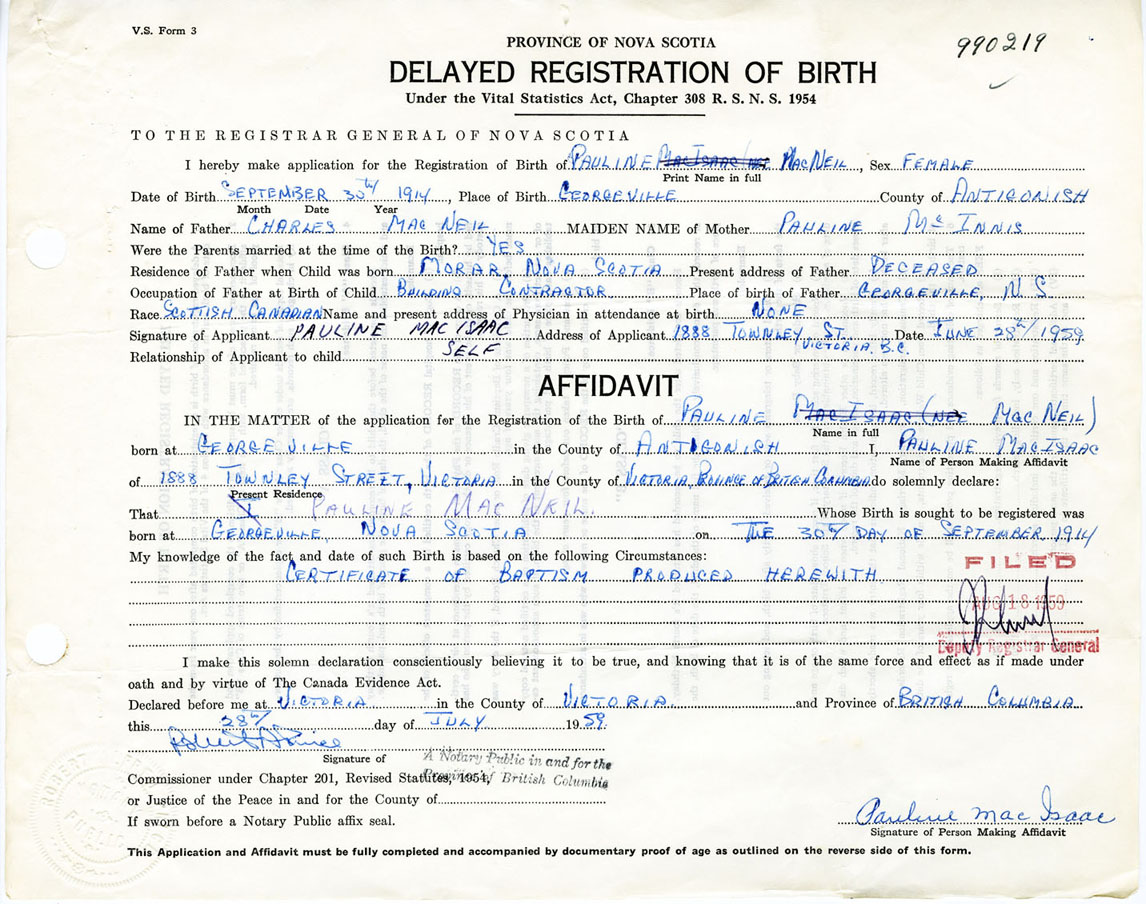 V.S. Form 3
990219
PROVINCE OF NOVA SCOTIA
DELAYED REGISTRATION OF BIRTH
Under the Vital Statistics Act, Chapter 308 R. S. N. S. 1954
TO THE REGISTRAR GENERAL OF NOVA SCOTIA
I hereby make application for the Registration of Birth of PAULINE MACISAAC (NEE MACNEIL, Sex FEMALE
Print Name in full
Date of Birth SEPTEMBER 30th 1914, Place of Birth GEORGEVILLE County of ANTIGONISH
Month Date Year
Name of Father CHARLES MAC NEIL MAIDEN NAME of Mother PAULINE Mc INNIS
Were the Parents married at the time of the Birth? YES
Residence of Father when Child was born MORAR, NOVA SCOTIA Present address of Father DECEASED
Occupation of Father at Birth of Child BUILDING CONTRACTOR Place of birth of Father GEORGEVILLE, N S
Race SCOTTISH CANADIAN Name and present address of Physician in attendance at birth NONE
Signature of Applicant PAULINE MAC ISAAC Address of Applicant 1888 TOWNLEY ST. VICTORIA, B.C. Date JUNE 28th 1959
Relationship of Applicant to child SELF
AFFIDAVIT
IN THE MATTER of the application for the Registration of the Birth of PAULINE MAC ISAAC (NEE MAC NEIL)
Name in full
born at GEORGEVILLE in the County of ANTIGONISH I, PAULINE MACISAAC
Name of Person Making Affidavit
of 1888 TOWNLEY STREET, VICTORIA in the County of VICTORIA, PROVINCE OF BRITISH COLUMBIA do solemnly declare:
Present Residence
That I PAULINE MAC NEIL. Whose Birth is sought to be registered was
born at GEORGEVILLE, NOVA SCOTIA on THE 30th DAY OF SEPTEMBER 1914
My knowledge of the fact and date of such Birth is based on the following Circumstances:
CERTIFICATE OF BAPTISM PRODUCED HEREWITH
FILED
AUG 18 1959
Deputy Registrar General
I make this solemn declaration conscientiously believing it to be true, and knowing that it is of the same force and effect as if made under
oath and by virtue of The Canada Evidence Act.
Declared before me at VICTORIA in the County of VICTORIA. and Province of BRITISH COLUMBIA
this 28th day of JULY 1959.
Signature of
A Notary Public in and for the
Province of British Columbia
Commissioner under Chapter 201, Revised Statutes, 1954,
or Justice of the Peace in and for the County of
If sworn before a Notary Public affix seal.
Pauline Mac Isaac
Signature of Person Making Affidavit
This Application and Affidavit must be fully completed and accompanied by documentary proof of age as outlined on the reverse side of this form.